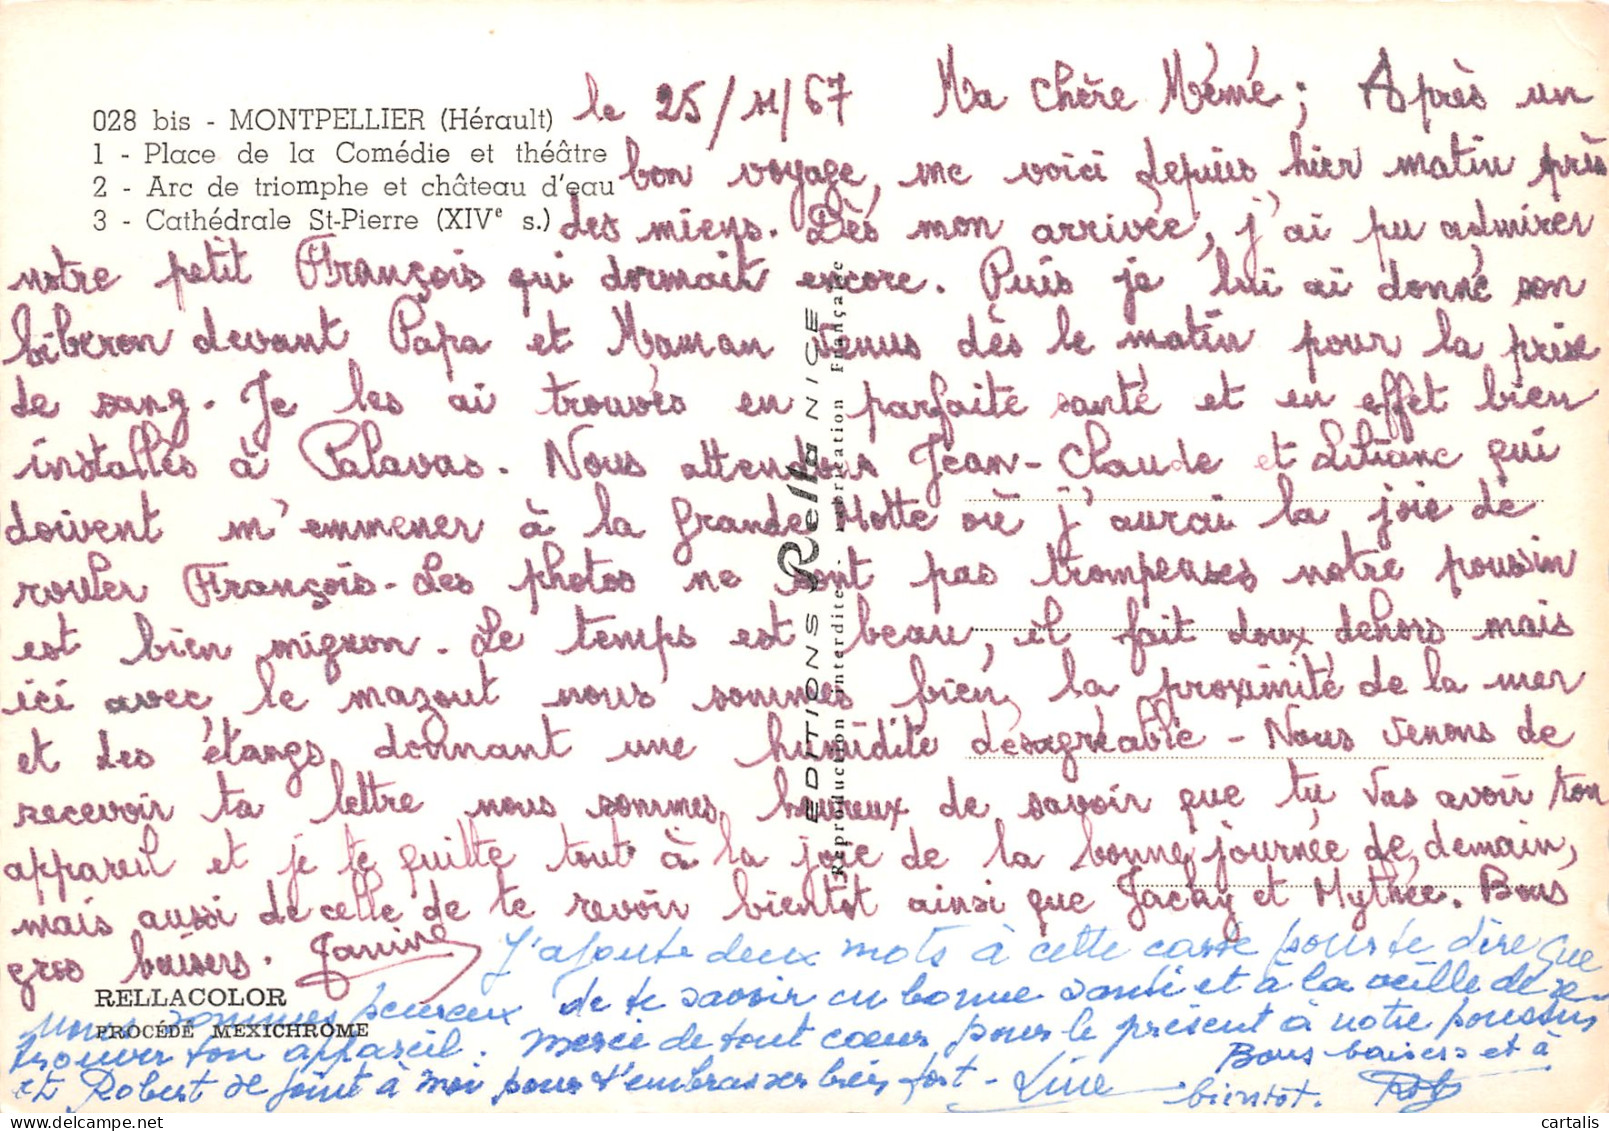 028 bis - MONTPELLIER (Hérault)
1 - Place de la Comédie et théâtre
2 - Arc de triomphe et château d'eau
3 - Cathédrale St-Pierre (XIVe s.)
le 25/11/67 Ma chère Mémé ; Après un
bon voyage, me voici depuis hier matin près
des miens. Dès mon arrivée, j'ai pu admirer
notre petit François qui dormait encore. Puis je lui ai donné son
biberon devant Papa et Maman venus dès le matin pour la prise
de sang. Je les ai trouvés en parfaite santé et en effet bien
installés à Palavas. Nous attendons Jean-Claude et Liliane qui
doivent m'emmener à la Grande Motte où j'aurai la joie de
rouler François. Les photos ne sont pas trompeuses notre poussin
est bien mignon. Le temps est beau, il fait doux dehors mais
ici avec le mazout nous sommes bien, la proximité de la mer
et des étangs donnant une humidité désagréable - Nous venons de
recevoir ta lettre nous sommes heureux de savoir que tu vas avoir ton
appareil et je te quitte tout à la joie de la bonne journée de demain,
mais aussi de celle de te revoir bientôt ainsi que Jacky et Mythée. Bons
gros baisers. Janine
J'ajoute deux mots à cette carte pour te dire que
nous sommes heureux de te savoir en bonne santé et à la veille de re-
trouver ton appareil. Merci de tout coeur pour le présent à notre poussin
et Robert se joint à moi pour t'embrasser bien fort - Line
Bons baisers et à
bientôt. Rob
RELLACOLOR
PROCÉDÉ MEXICHROME
EDITIONS Rella NICE
Reproduction interdite - Importation Française
cartalis